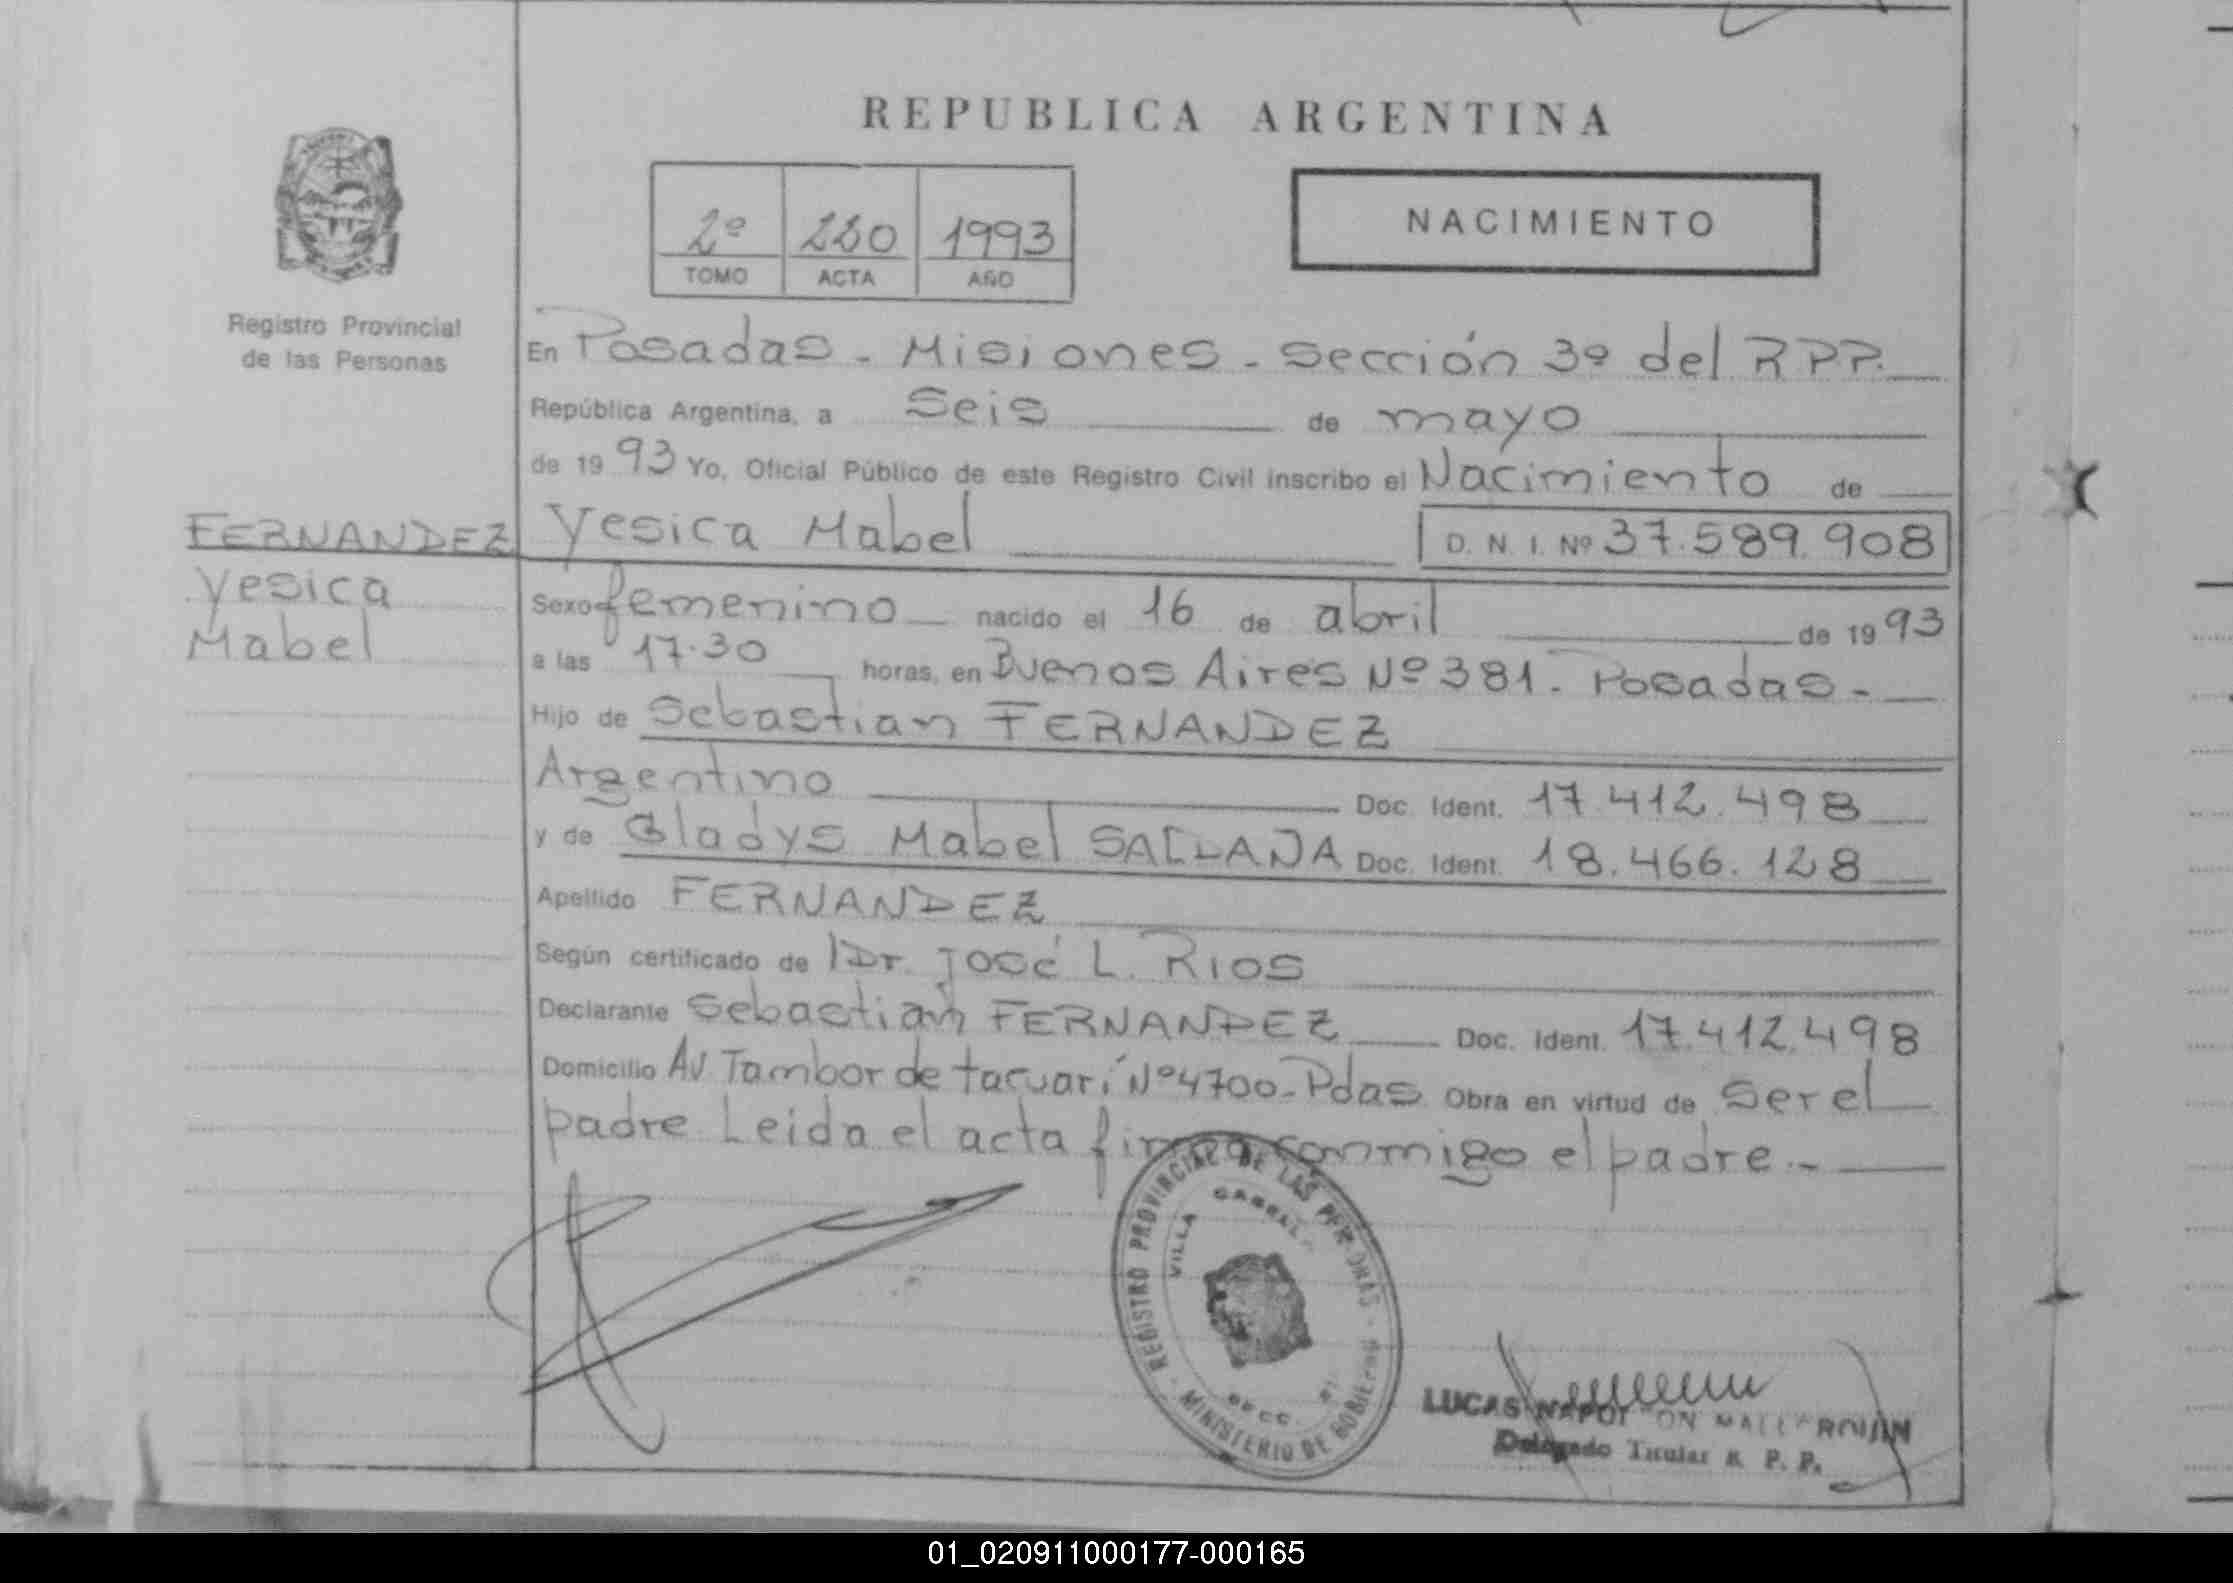 REPUBLICA ARGENTINA
2º 220 1993
TOMO ACTA AÑO
NACIMIENTO
Registro Provincial
de las Personas
En Posadas - Misiones - Sección 3º del R.P.P.
República Argentina, a Seis de mayo
de 1993 Yo, Oficial Público de este Registro Civil inscribo el Nacimiento de
FERNANDEZ
Yesica
Mabel
Yesica Mabel D. N. I. Nº 37.589.908
Sexo femenino nacido el 16 de abril de 1993
a las 17.30 horas, en Buenos Aires Nº 381 - Posadas -
Hijo de Sebastian FERNANDEZ
Argentino Doc. Ident. 17.412.498
y de Gladys Mabel Doc. Ident. 18.466.128
Apellido FERNANDEZ
Según certificado de Dr. José L. RIOS
Declarante Sebastian FERNANDEZ Doc. Ident. 17.412.498
Domicilio Av Tambor de tacuarí Nº 4700 - Pdas Obra en virtud de Ser el
padre. Leida el acta firma conmigo el padre. -
REGISTRO PROVINCIAL DE LAS PERSONAS - MINISTERIO DE GOBIERNO
VILLA CABRAL
SECC.
LUCAS
Delegado Titular R. P. P.
01_020911000177-000165